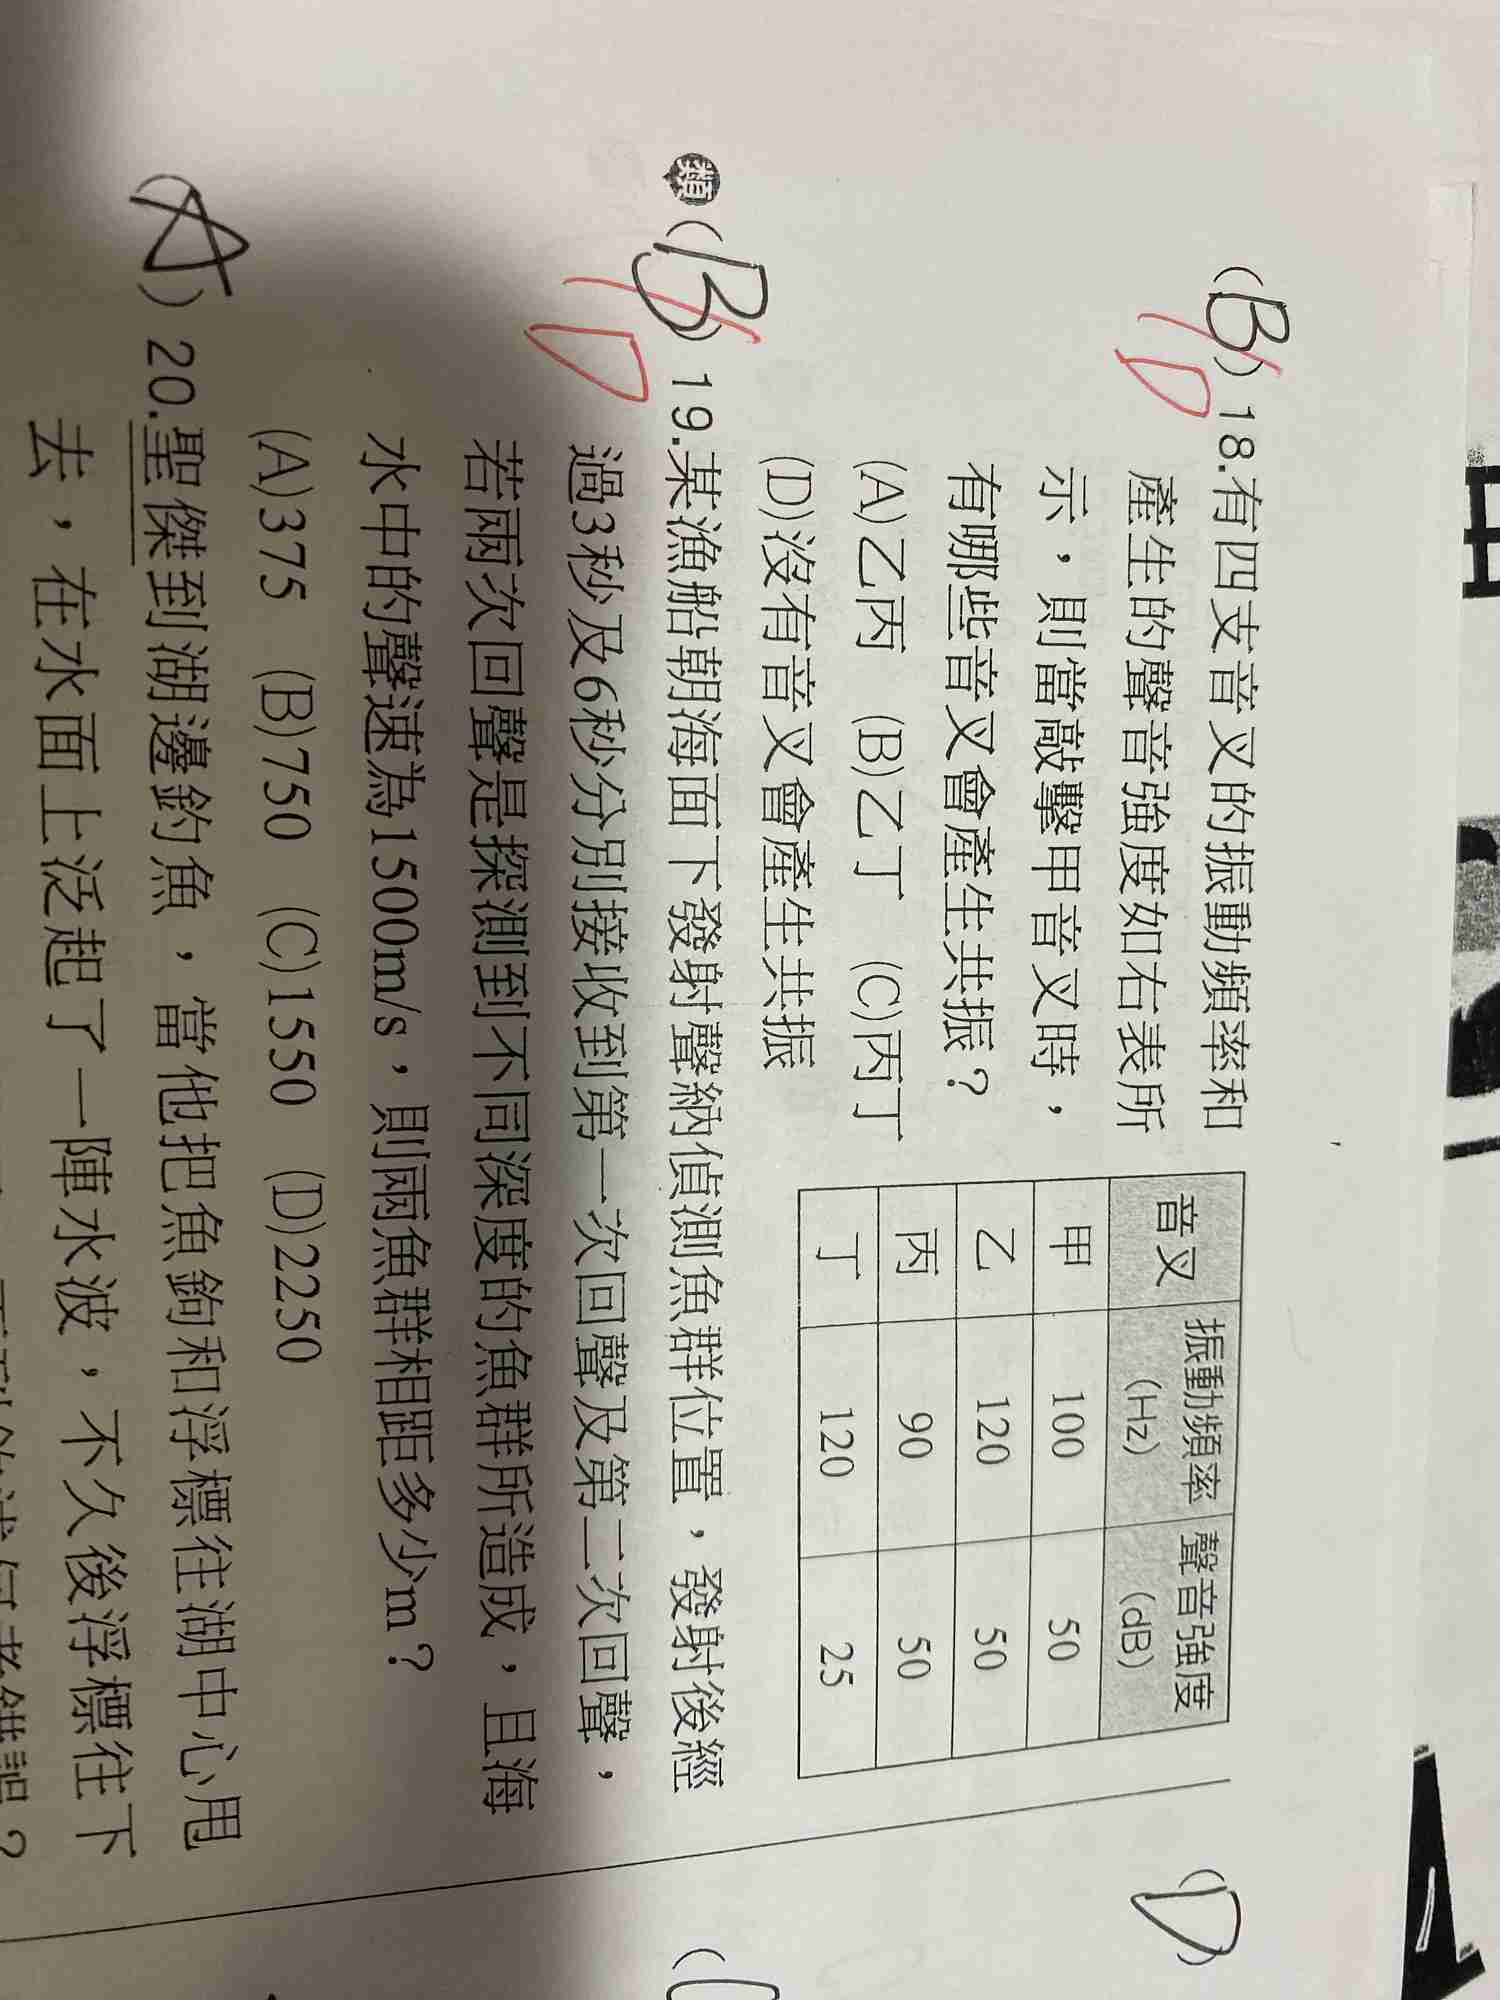 (B)18.有四支音叉的振動頻率和
D
產生的聲音強度如右表所
示，則當敲擊甲音叉時，
有哪些音叉會產生共振？
(A)乙丙 (B)乙丁 (C)丙丁
(D)沒有音叉會產生共振
音叉 振動頻率(Hz) 聲音強度(dB)
甲 100 50
乙 120 50
丙 90 50
丁 120 25
類(B)19.某漁船朝海面下發射聲納偵測魚群位置，發射後經
D
過3秒及6秒分別接收到第一次回聲及第二次回聲，
若兩次回聲是探測到不同深度的魚群所造成，且海
水中的聲速為1500m/s，則兩魚群相距多少m？
(A)375 (B)750 (C)1550 (D)2250
(A)20.聖傑到湖邊釣魚，當他把魚鉤和浮標往湖中心甩
去，在水面上泛起了一陣水波，不久後浮標往下
(D)